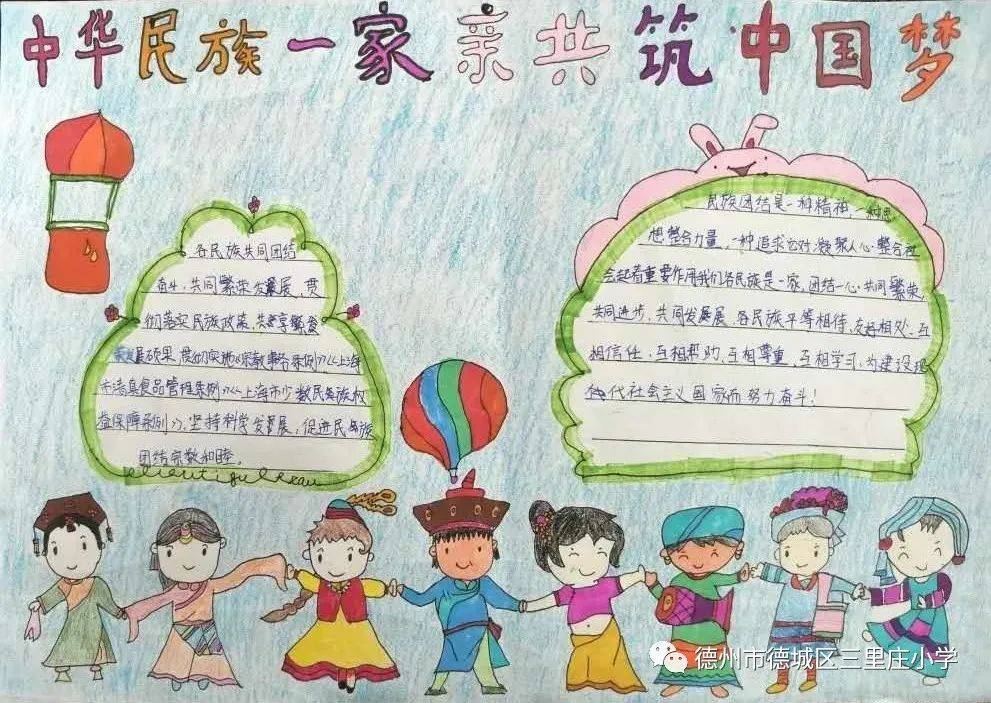 中华民族一家亲共筑中国梦
各民族共同团结
奋斗,共同繁荣发展,贯
彻落实民族政策,共享繁
发展硕果,贯彻实施《宗教事务条例》《上海
市清真食品管理条例》《上海市少数民族权
益保障条例》,坚持科学发展,促进民族
团结宗教和睦。
民族团结是一种精神,一种思
想整合力量,一种追求它对凝聚人心·整合社
会起着重要作用我们各民族是一家,团结一心·共同繁荣
共同进步,共同发展 各民族平等相待,友好相处,互
相信任,互相帮助,互相尊重,互相学习,为建设现
代社会主义国家而努力奋斗!
德州市德城区三里庄小学